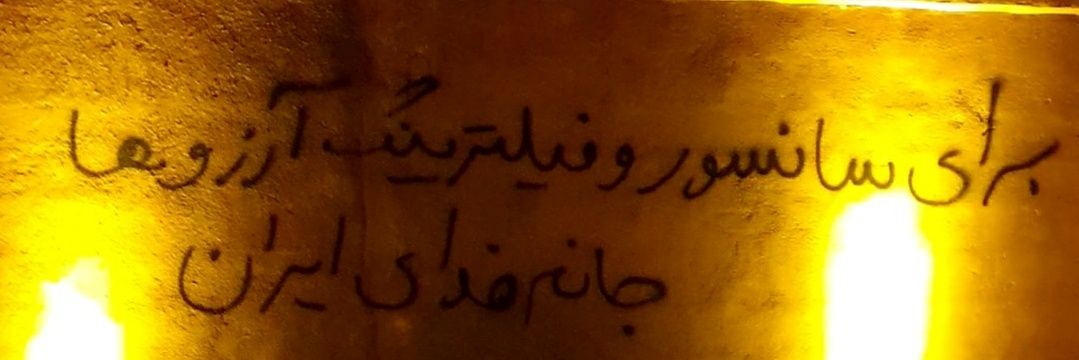 برای سانسور و فیلترینگ آرزوها
جانم فدای ایران